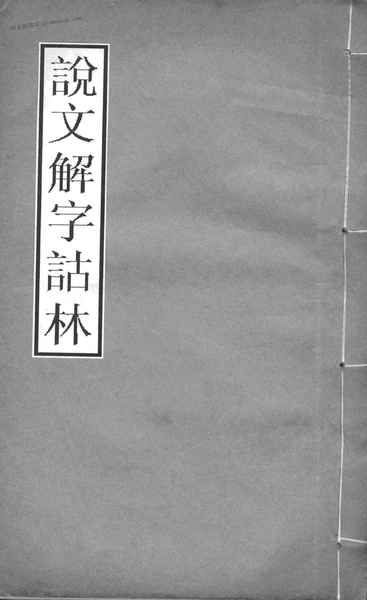 說文解字詁林